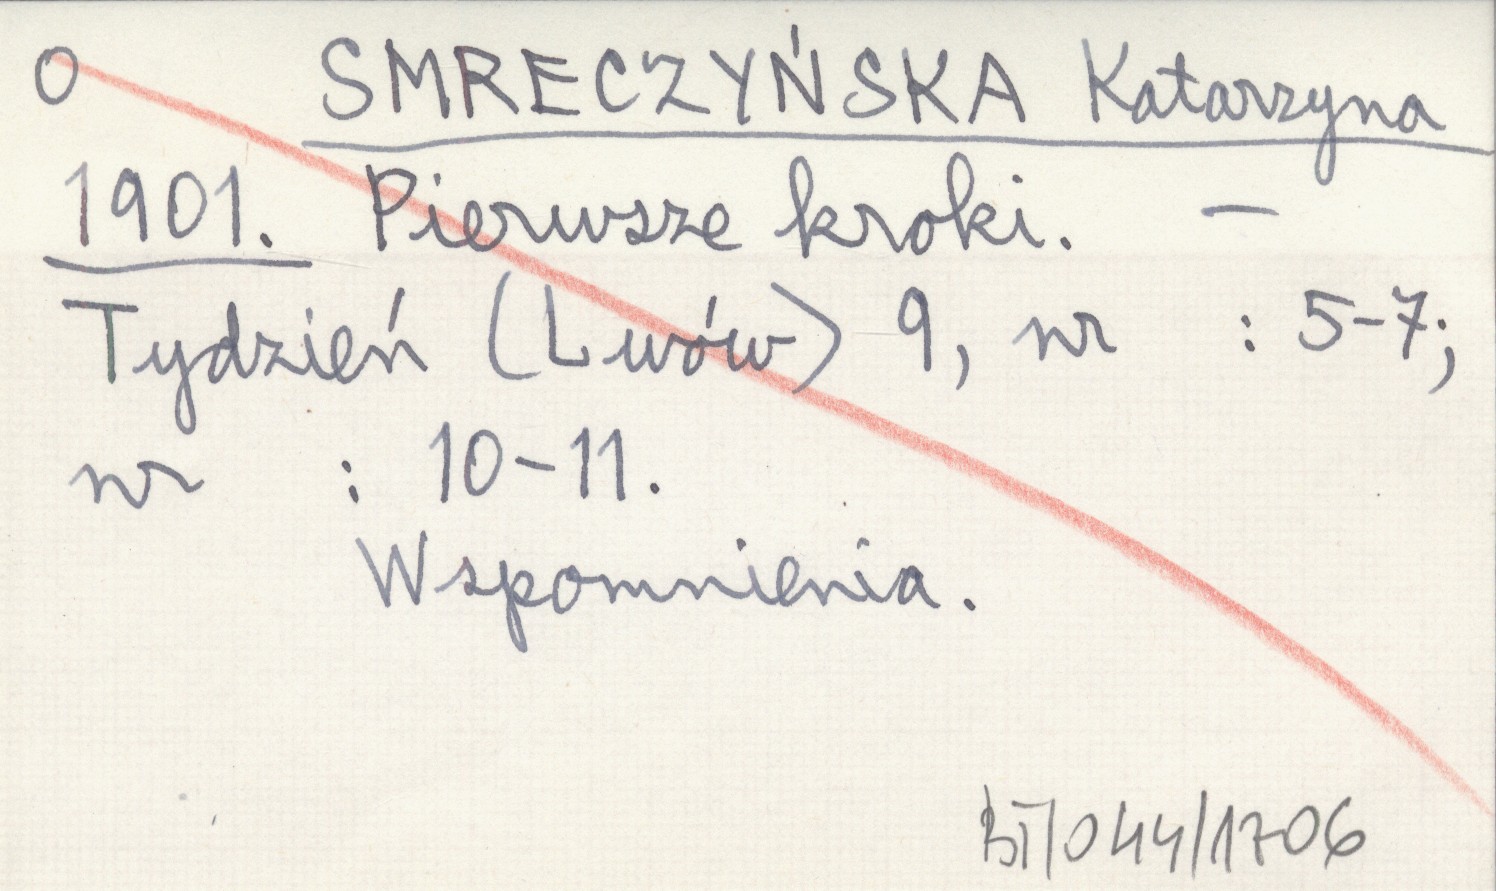 O SMRECZYŃSKA Katarzyna
1901. Pierwsze kroki. —
Tydzień (Lwów) 9, nr : 5-7;
nr : 10-11.
Wspomnienia.
BT/044/1706